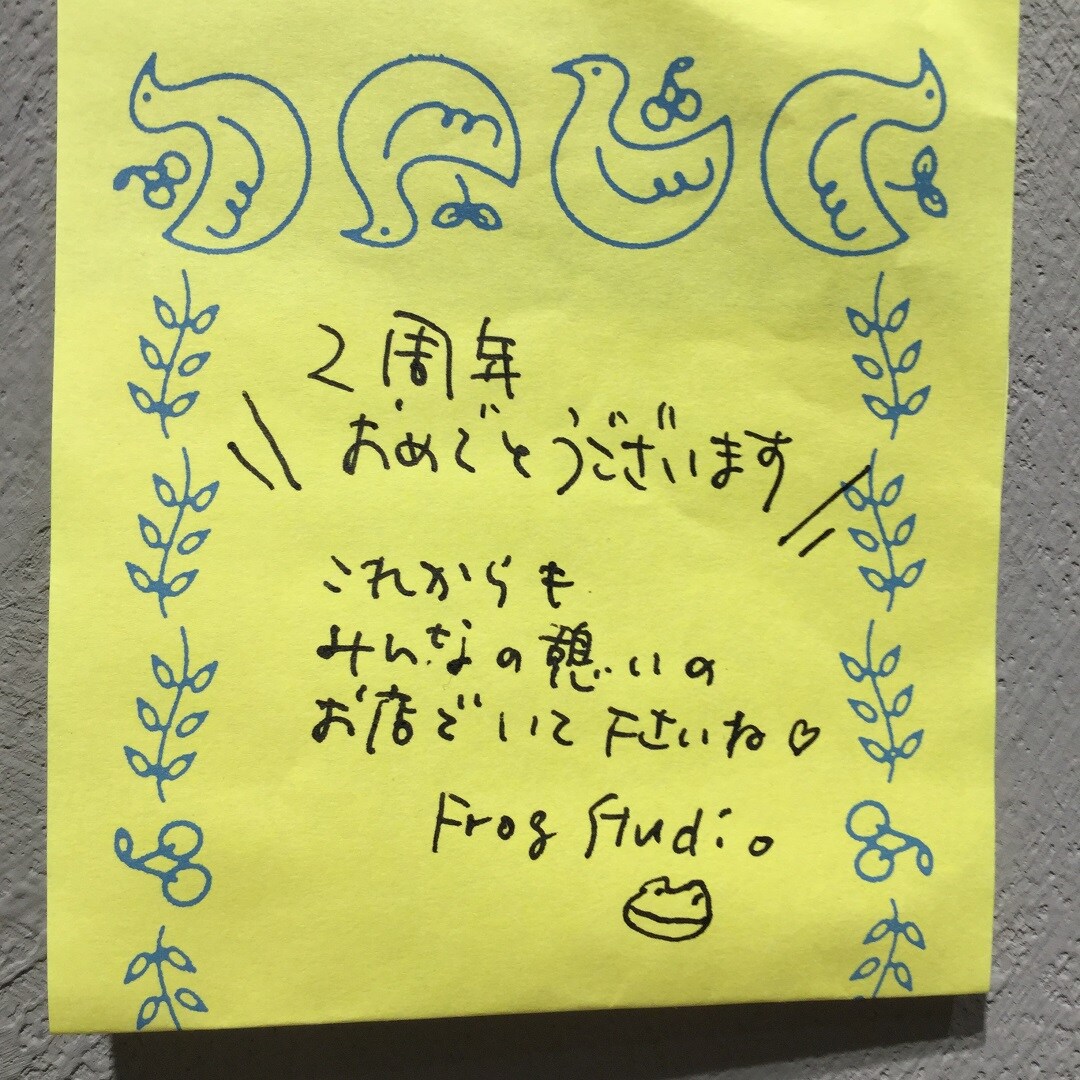 2周年
おめでとうございます
これからも
みんなの憩いの
お店でいて下さいね♡
Frog Studio